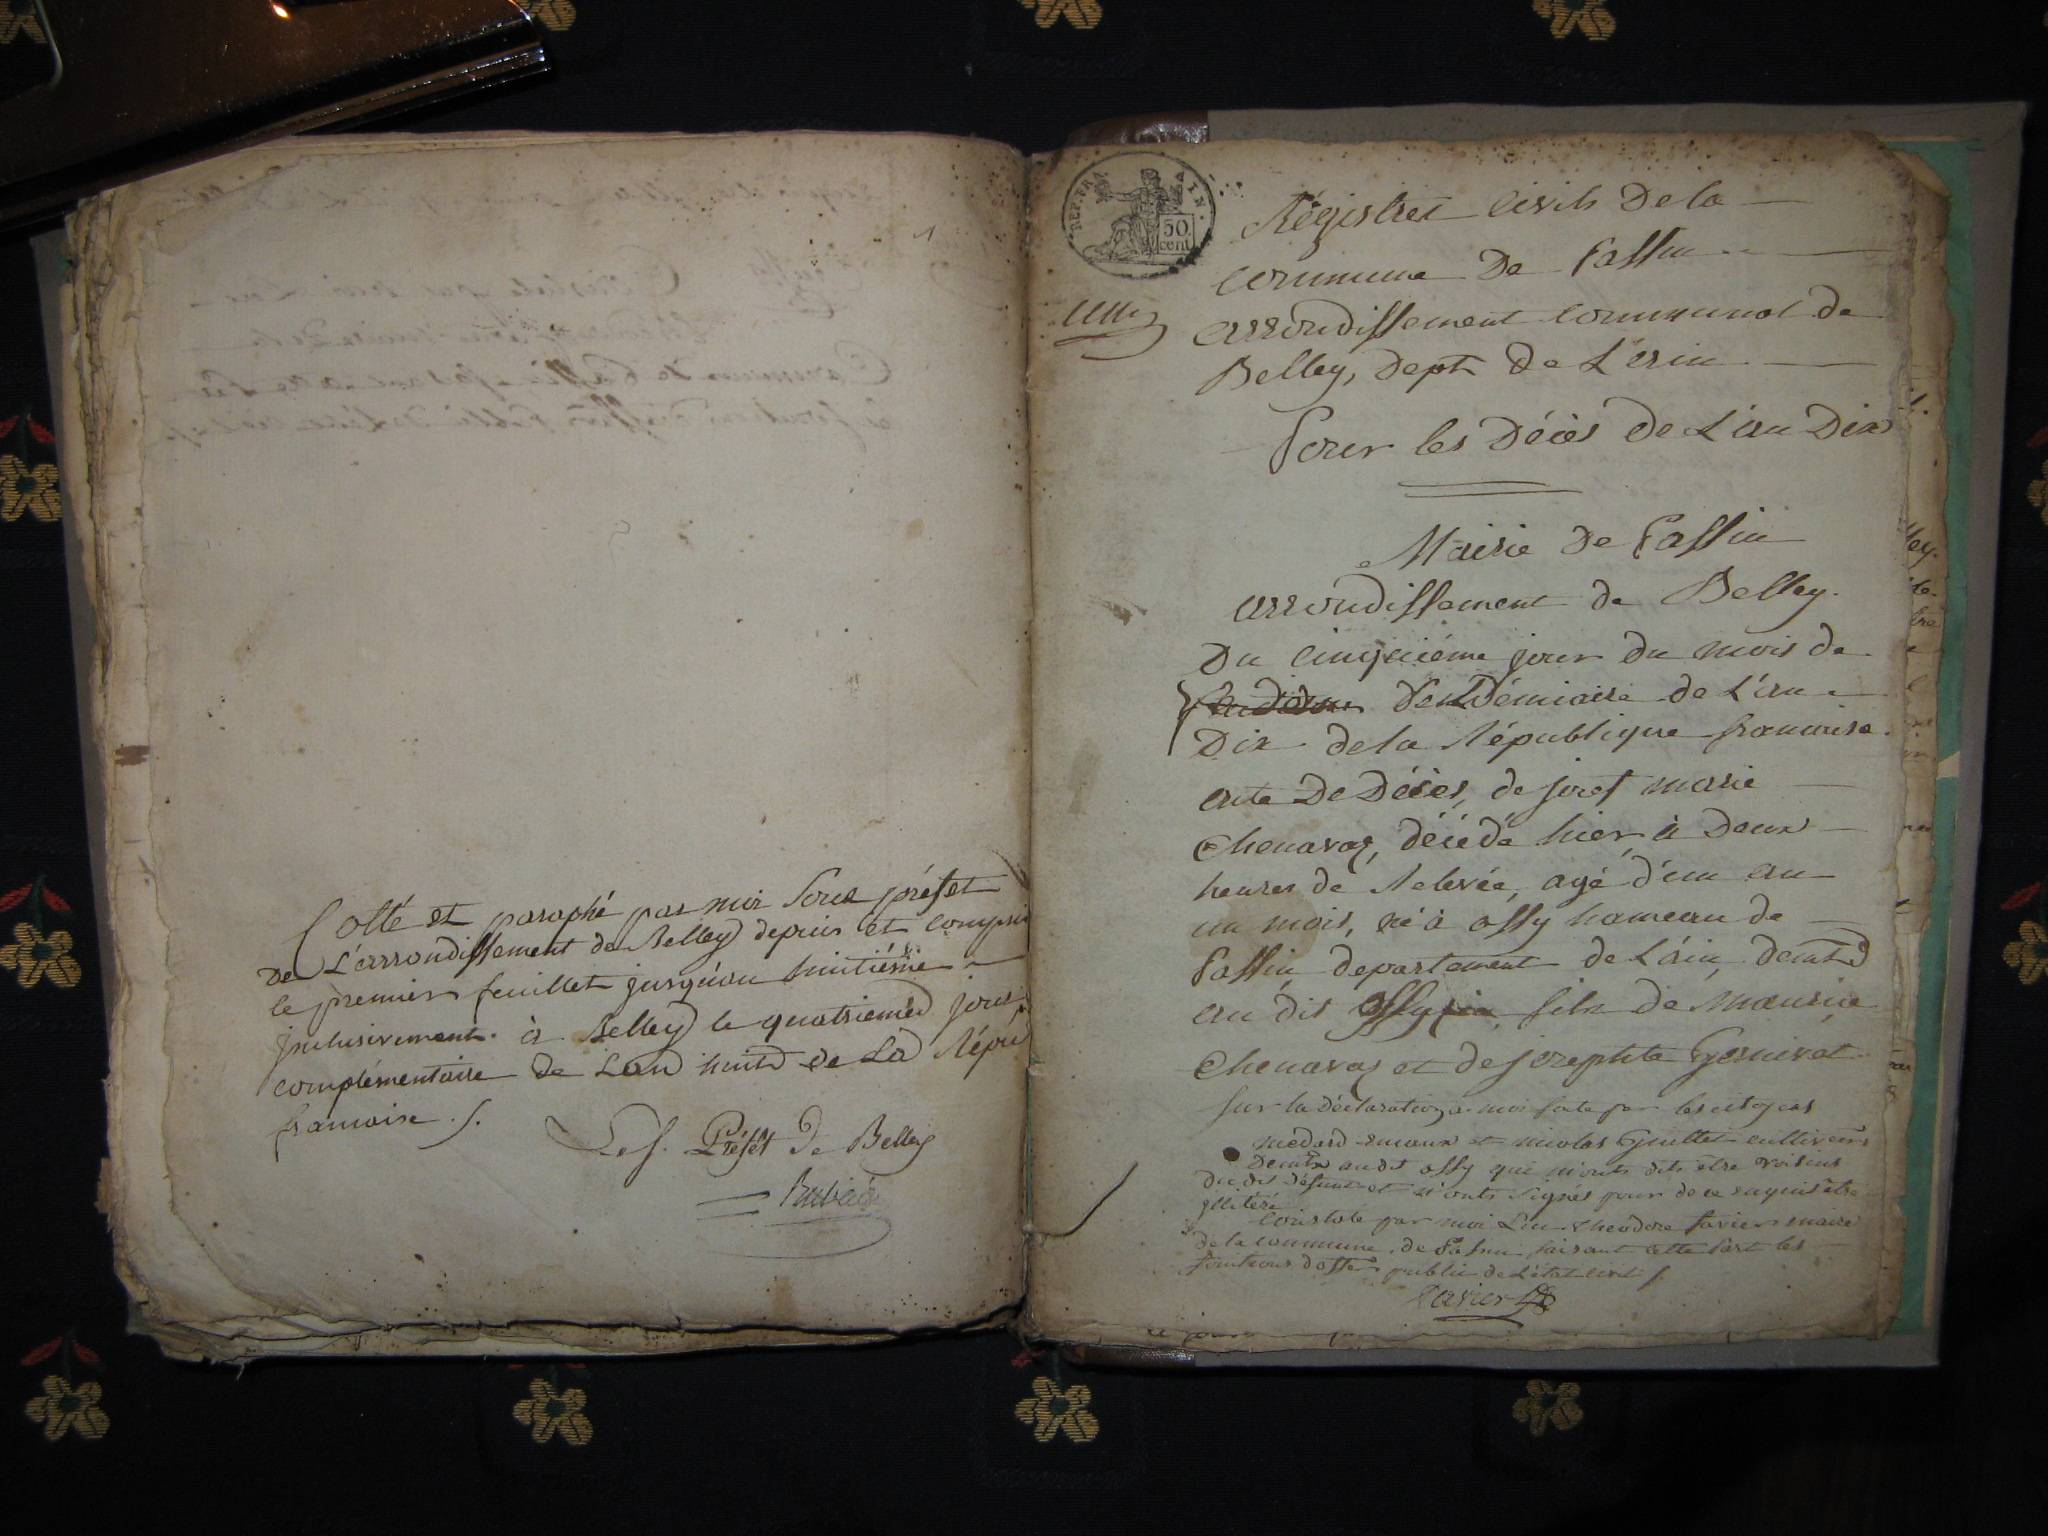 Cotté et paraphé par moi sous préfet
De L'arrondissement de Belley depuis et compris
le premier feuillet jusqu'au huitiéme
inclusivement. à Belley le quatrieme jour
complémentaire de Lan huit de La Répu
francaise ./.
Le s. Préfet de Belley
REP. FRA. AIN.
50 cent
Régistres Civils De la
commune De Passin
arrondissement communal de
Belley, Dept De L'ain
Pour les Décès De L'an Dix
Mairie De Passin
arrondissement de Belley.
Du Cinquiéme jour du mois de
Vendémiaire de L'an
Dix de la République francaise
acte De Décès, de josef marie
Chenavaz, décédé hier à Deux
heures de Relevée, agé d'un an
un mois, né à ossy hameau de
Passin, departement de L'ain, demt
au dit ossy fils de Maurice
Chenavaz et de josephte Genivet
sur la Déclaration à moi faite par les citoyens
médard et nicolas Guillet cultivateurs
demts audit ossy qui m'onts dits être voisins
du dit défunt et n'onts signés pour de ce enquis être
illitéré
Constaté par moi théodore favier maire
de la commune de Passin faisant cette Part les
fonctions d'offier public de L'état civil ./.
favier